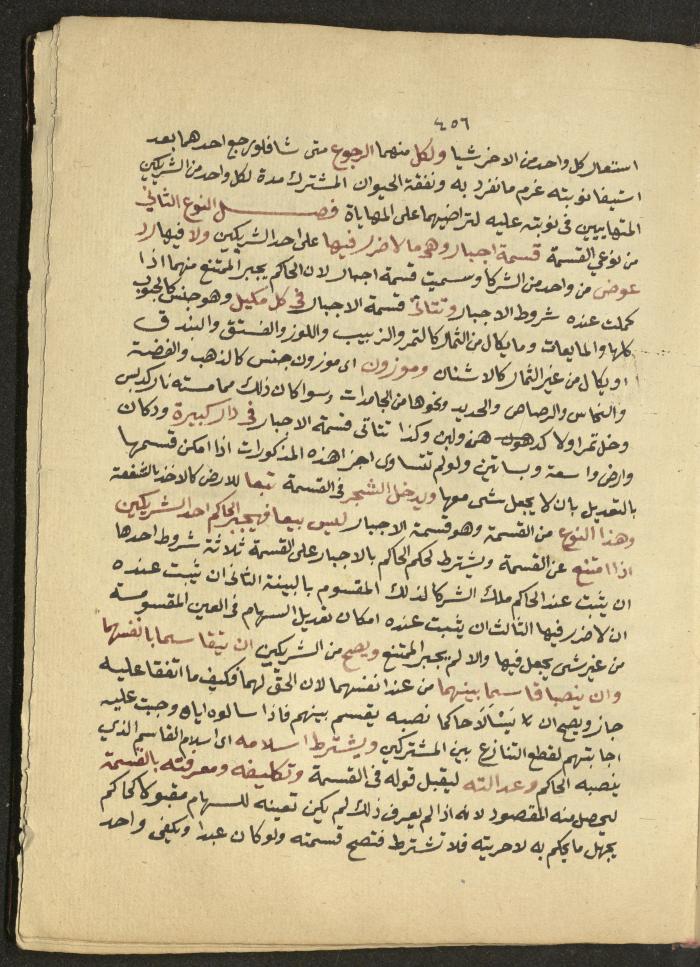 ٤٥٦
استعار كل واحد من الاخر شيا ولكل منهما الرجوع متى شا فلو رجع احدهما بعد
استيفا نوبته غرم ما انفرد به ونفقة الحيوان المشترك مدة لكل واحد من الشريكين
المتهاييين في نوبته عليه لتراضيهما على المهاياة فصل النوع الثاني
من نوعي القسمة قسمة اجبار وهي ما لا ضرر فيها على احد الشريكين ولا فيها رد
عوض من واحد من الشركا وسميت قسمة اجبار لان الحاكم يجبر الممتنع منهما اذا
كملت عنده شروط الاجبار وتتاتى قسمة الاجبار في كل مكيل وهو جنس كالحبوب
كلها والمايعات وما يكال من الثمار كالتمر والزبيب واللوز والفستق والبندق
او يكال من غير الثمار كالاشنان وموزون اى موزون جنس كالذهب والفضة
والنحاس والرصاص والحديد ونحوها من الجامدات وسوا كان ذلك مما مسته نار كدبس
وخل تمر اولا كدهن ولبن وكذا تتاتى قسمة الاجبار في دار كبيرة ودكان
وارض واسعة وبساتين ولو لم تتساوى اجزا هذه المذكورات اذا امكن قسمها
بالتعديل بان لا يجعل شى معها ويدخل الشجر في القسمة تبعا للارض كالاخذ بالشفعة
وهذا النوع من القسمة وهو قسمة الاجبار ليس بيعا فيجبر الحاكم احد الشريكين
اذا امتنع عن القسمة ويشترط لحكم الحاكم بالاجبار على القسمة ثلاثة شروط احدها
ان يثبت عند الحاكم ملك الشركا لذلك المقسوم بالبينة الثاني ان يثبت عنده
ان لا ضرر فيها الثالث ان يثبت عنده امكان تعديل السهام في العين المقسومة
من غير شى يجعل فيها والا لم يجبر الممتنع ويصح من الشريكين ان يتقاسما بانفسهما
وان ينصبا قاسما بينهما من عند انفسهما لان الحق لهما فكيف ما اتفقا عليه
جاز ويصح ان يسالا حاكما نصبه يقسم بينهم فاذا سالوه اياه وجبت عليه
اجابتهم لقطع التنازع بين المشتركين ويشترط اسلامه اى اسلام القاسم الذي
ينصبه الحاكم وعدالته ليقبل قوله في القسمة وتكليفه ومعرفته بالقسمة
ليحصل منه المقصود لانه اذا لم يعرف ذلك لم يكن تعيينه للسهام مقبولا كحاكم
يجهل ما يحكم به لا حريته فلا تشترط فتصح قسمته ولو كان عبدا ويكفى واحد